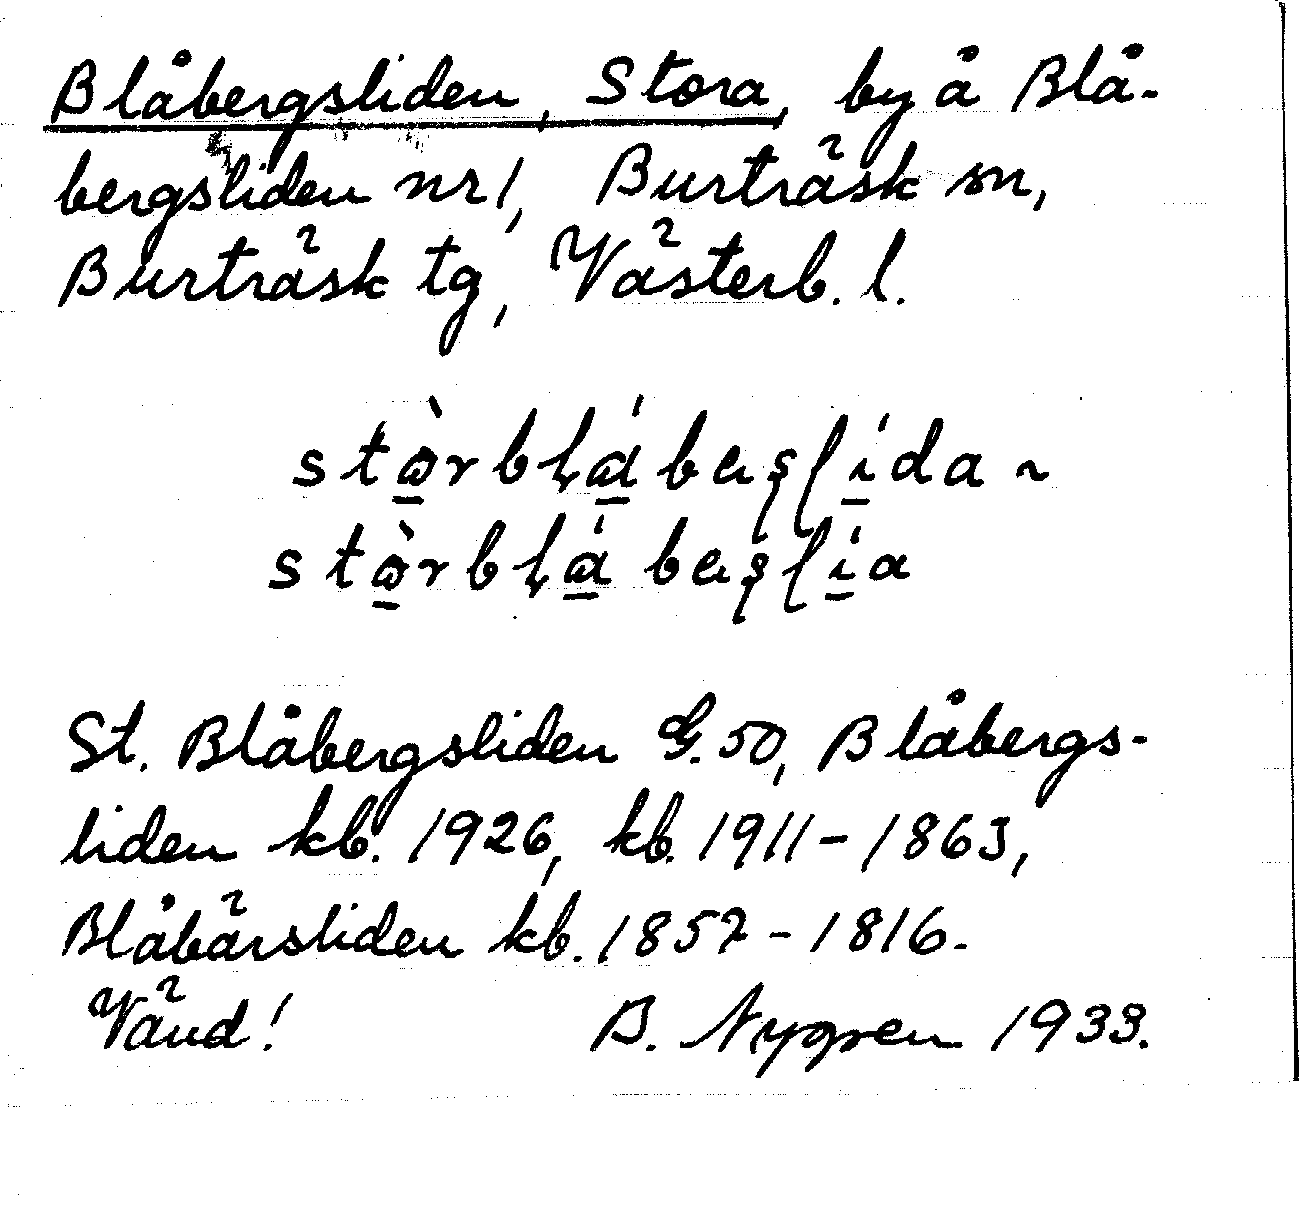 Blåbergsliden, Stora, by å Blå-
bergsliden nr 1, Burträsk sn,
Burträsk tg, Västerb. l.
St. Blåbergsliden G. 50, Blåbergs-
liden kb. 1926, kb. 1911-1863,
Blåbärsliden kb. 1857-1816.
Vänd! B. Nygren 1933.